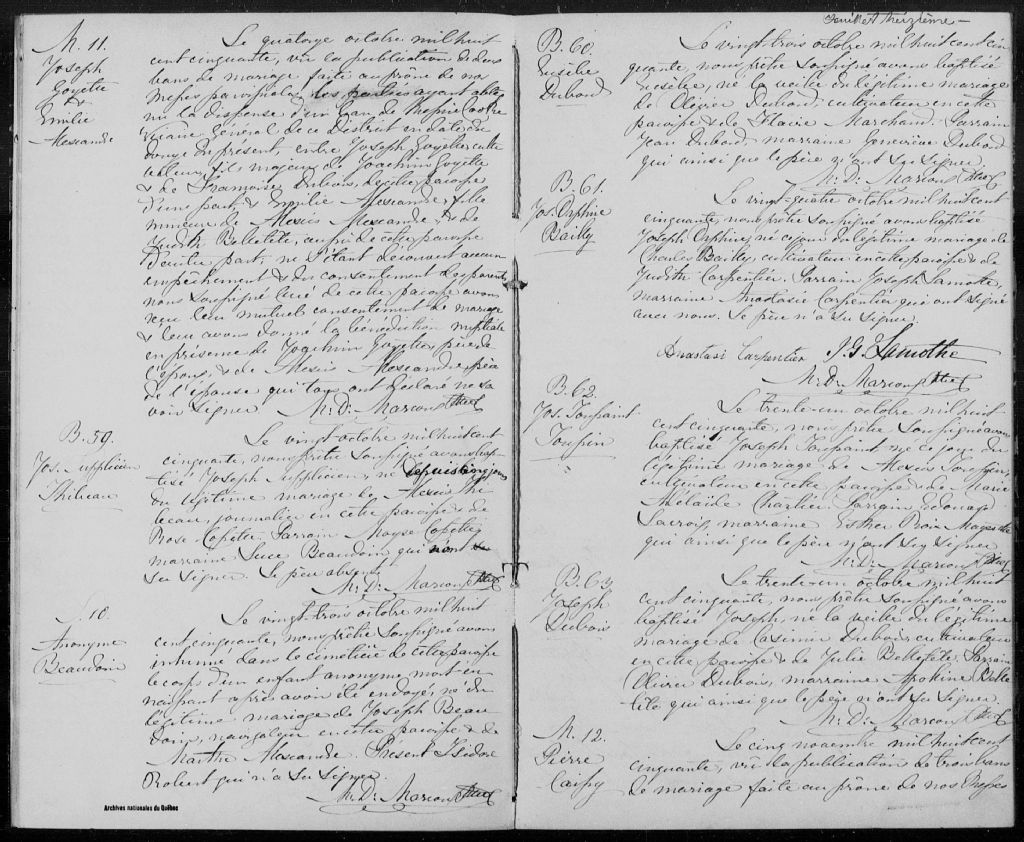 M. 11.
Joseph
Goyette
&
Emilie
Alexandre
Le quatorze octobre mil huit
cent cinquante, vu la publication de deux
bans de mariage faite au prône de nos
Messes paroissiales, les parties ayant obte-
nu la dispense d'un ban de
Vicaire Général de ce District en date du
douze du présent, entre Joseph Goyette, culti-
vateur, fils majeur de Joachim Goyette
& de Françoise Dubois, de cette paroisse
d'une part; & Emilie Alexandre, fille
mineure de Alexis Alexandre, & de
Judith Bellefete, aussi de cette paroisse
d'autre part, ne s'étant découvert aucun
empêchement & du consentement des parents
nous soussigné Curé de cette paroisse avons
reçu leur mutuel consentement de mariage
& leur avons donné la bénédiction nuptiale
en présence de Joachim Goyette, père de
l'époux, & de Alexis Alexandre, père
de l'épouse qui tous ont déclaré ne sa-
voir signer. M. D. Marcoux Ptre
B. 59.
Jos. Supplicien
Thibeau
Le vingt octobre mil huit cent
cinquante, nous prêtre soussigné avons bap-
tisé Joseph Supplicien, né depuis cinq jours
du légitime mariage de Alexis Thi-
beau, journalier en cette paroisse & de
Rose Copette. Parrain Moyse Copette,
marraine Luce Beaudoin qui n'ont
su signer. Le père absent.
M. D. Marcoux Ptre
S. 10.
Anonyme
Beaudoin
Le vingt-trois octobre mil huit
cent cinquante, nous prêtre soussigné avons
inhumé dans le cimetière de cette paroisse
le corps d'un enfant anonyme mort en
naissant après avoir été ondoyé, né du
légitime mariage de Joseph Beau-
doin, navigateur en cette paroisse & de
Marthe Alexandre. Présent Isidore
Robert qui n'a su signer.
M. D. Marcoux Ptre
Archives nationales du Québec
Feuillet treizième
B. 60.
Eusèbe
Dubord
Le vingt-trois octobre mil huit cent cin-
quante, nous prêtre soussigné avons baptisé
Eusèbe, né la veille du légitime mariage
de Olivier Dubord, cultivateur en cette
paroisse & de Flavie Marchand. Parrain
Jean Dubord, marraine Geneviève Dubord
qui ainsi que le père n'ont su signer.
M. D. Marcoux Ptre
B. 61.
Jos. Orphire
Bailly
Le vingt-quatre octobre mil huit cent
cinquante, nous prêtre soussigné avons baptisé
Joseph Orphire, né ce jour du légitime mariage de
Charles Bailly, cultivateur en cette paroisse & de
Judith Carpentier. Parrain Joseph Lamothe,
marraine Anastasie Carpentier qui ont signé
avec nous. Le père n'a su signer.
Anastasi Carpentier J. G. Lamothe
M. D. Marcoux Ptre
B. 62.
Jos. Toussaint
Toupin
Le trente-un octobre mil huit
cent cinquante, nous prêtre soussigné avons
baptisé Joseph Toussaint né ce jour du
légitime mariage de Alexis Toupin,
cultivateur en cette paroisse & de Marie
Adélaïde Chartier. Parrain Edouard
Lacroix, marraine Esther
qui ainsi que le père n'ont su signer.
M. D. Marcoux Ptre
B. 63
Joseph
Dubois
Le trente-un octobre mil huit
cent cinquante, nous prêtre soussigné avons
baptisé Joseph, né la veille du légitime
mariage de Casimir Dubois, cultivateur
en cette paroisse & de Julie Bellefete. Parrain
Olivier Dubois, marraine Apoline Belle-
fete qui ainsi que le père n'ont su signer.
M. D. Marcoux Ptre
M. 12.
Pierre
Caissy
Le cinq novembre mil huit cent
cinquante, vu la publication de trois bans
de mariage faite au prône de nos Messes